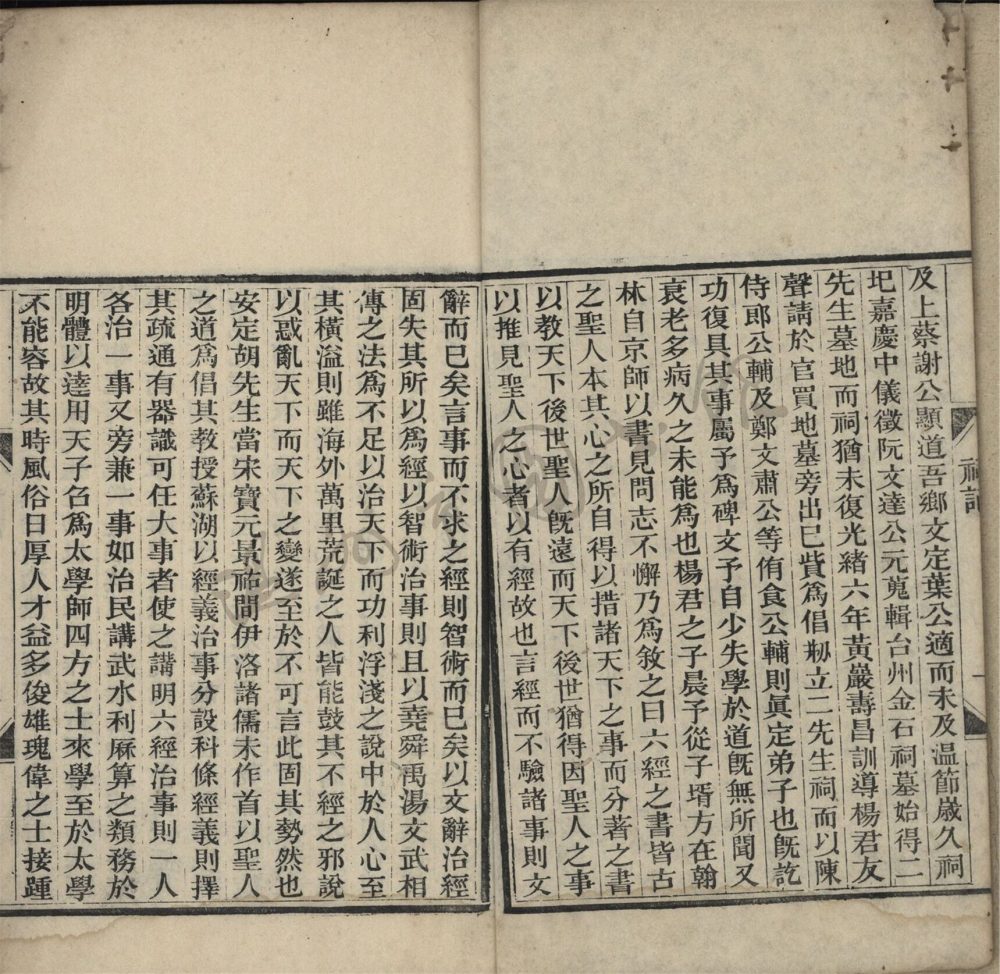 及上蔡謝公顯道吾鄉文定葉公適而未及温節歲久祠
圮嘉慶中儀徵阮文達公元蒐輯台州金石祠墓始得二
先生墓地而祠猶未復光緒六年黃巖壽昌訓導楊君友
聲請於官買地墓旁出已貲爲倡刱立二先生祠而以陳
侍郎公輔及鄭文肅公等侑食公輔則眞定弟子也旣訖
功復具其事屬予爲碑文予自少失學於道旣無所聞又
衰老多病久之未能爲也楊君之子晨予從子壻方在翰
林自京師以書見問志不懈乃爲敘之曰六經之書皆古
之聖人本其心之所自得以措諸天下之事而分著之書
以教天下後世聖人旣遠而天下後世猶得因聖人之事
以推見聖人之心者以有經故也言經而不驗諸事則文
祠記
一
辭而已矣言事而不求之經則智術而已矣以文辭治經
固失其所以爲經以智術治事則且以堯舜禹湯文武相
傳之法爲不足以治天下而功利浮淺之說中於人心至
其橫溢則雖海外萬里荒誕之人皆能鼓其不經之邪說
以惑亂天下而天下之變遂至於不可言此固其勢然也
安定胡先生當宋寶元景祐間伊洛諸儒未作首以聖人
之道爲倡其教授蘇湖以經義治事分設科條經義則擇
其疏通有器識可任大事者使之講明六經治事則一人
各治一事又旁兼一事如治民講武水利厤算之類務於
明體以達用天子召爲太學師四方之士來學至於太學
不能容故其時風俗日厚人才益多俊雄瑰偉之士接踵